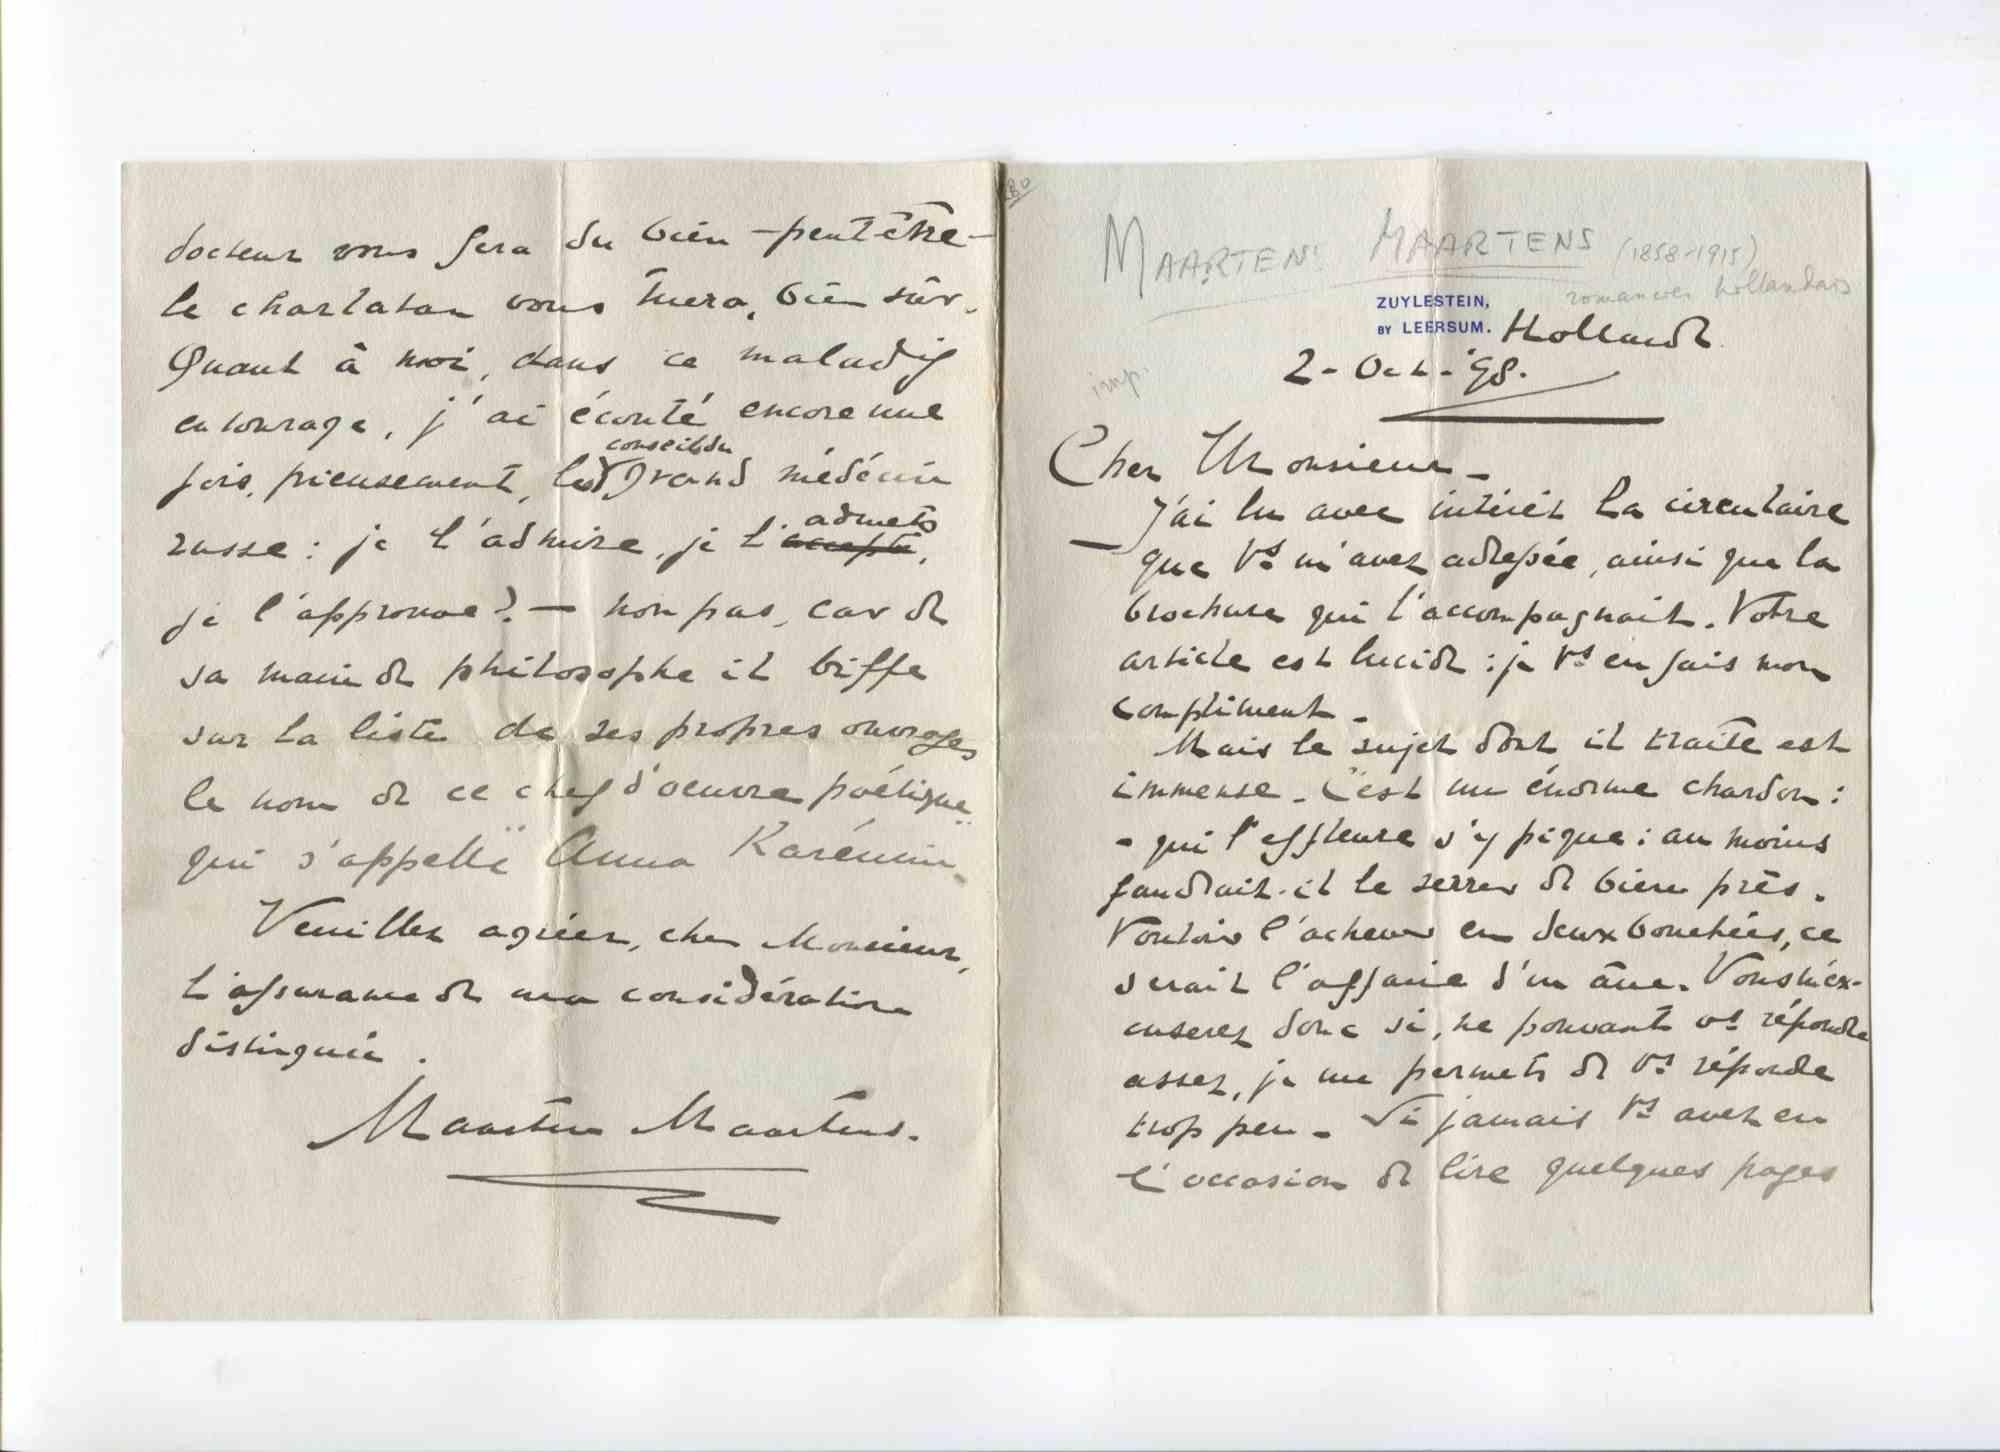 docteur vous fera du bien - peut être -
le charlatan vous tuera, bien sûr.
Quant à moi, dans ce maladif
entourage, j'ai écouté encore une
conseils du
fois, pieusement, les grand médécin
admets
russe : je l'admire, je l'accepte,
je l'approuve? — non pas, car de
sa main de philosophe il biffe
sur la liste de ses propres ouvrages
le nom de ce chef d'oeuvre poétique
qui s'appelle Anna Karénin.
Veuillez agréer, cher Monsieur,
l'assurance de ma considération
distinguée.
Maarten Maartens.
80
MAARTEN MAARTENS (1858-1915)
romancier hollandais
ZUYLESTEIN,
BY LEERSUM. Holland
2 - Oct - '98.
imp.
Cher Monsieur -
J'ai lu avec intérêt la circulaire
que Vs m'avez adressée, ainsi que la
brochure qui l'accompagnait. Votre
article est lucide : je Vs en fais mon
compliment -
Mais le sujet dont il traite est
immense - C'est un énorme chardon :
- qui l'effleure s'y pique : au moins
faudrait-il le serrer de bien près.
Vouloir l'achever en deux bouchées, ce
serait l'affaire d'un âne. Vous m'ex-
cuserez donc si, ne pouvant vs répondre
assez, je me permets de Vs répondre
trop peu - Si jamais Vs avez eu
l'occasion de lire quelques pages